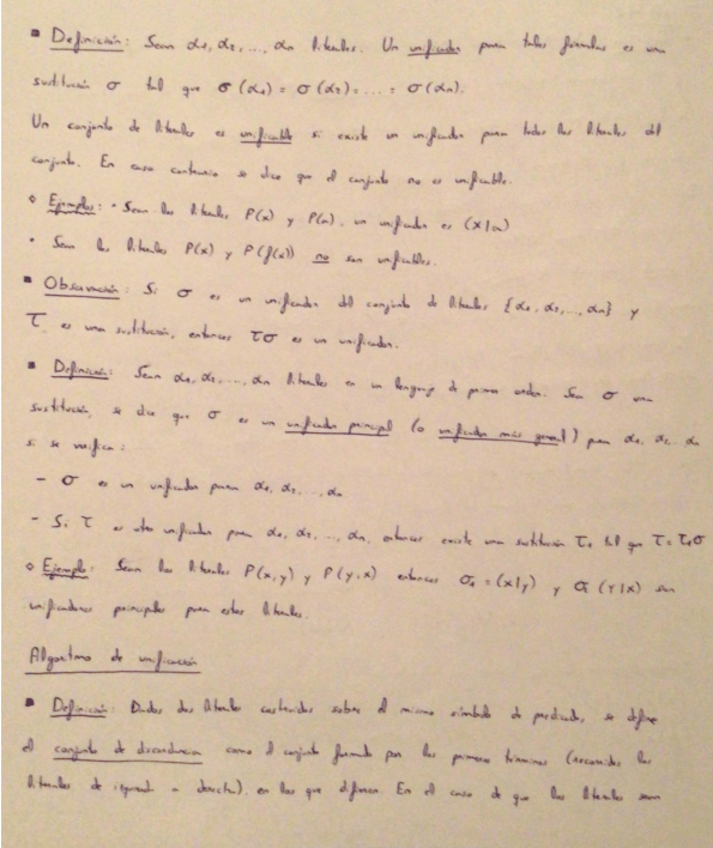 ▪ Definición: Sean α₁, α₂, ..., αn literales. Un unificador para tales fórmulas es una
sustitución σ tal que σ(α₁) = σ(α₂) = ... = σ(αn).
Un conjunto de literales es unificable si existe un unificador para todos los literales del
conjunto. En caso contrario se dice que el conjunto no es unificable.
◦ Ejemplos: • Sean los literales P(x) y P(a), un unificador es (x|a)
• Sean los literales P(x) y P(f(x)) no son unificables.
▪ Observación: Si σ es un unificador del conjunto de literales {α₁, α₂, ..., αn} y
τ es una sustitución, entonces τσ es un unificador.
▪ Definición: Sean α₁, α₂, ..., αn literales en un lenguaje de primer orden. Sea σ una
sustitución, se dice que σ es un unificador principal (o unificador más general) para α₁, α₂, ... αn
si se verifica:
- σ es un unificador para α₁, α₂, ..., αn
- Si τ es otro unificador para α₁, α₂, ..., αn, entonces existe una sustitución τ₁ tal que τ = τ₁σ
◦ Ejemplo: Sean los literales P(x,y) y P(y,x) entonces σ₁ = (x|y) y σ₂ (y|x) son
unificadores principales para estos literales.
Algoritmo de unificación
▪ Definición: Dados dos literales construidos sobre el mismo símbolo de predicado, se define
el conjunto de discordancia como el conjunto formado por los primeros términos (recorridos los
literales de izquierda a derecha) en los que difieren. En el caso de que los literales sean